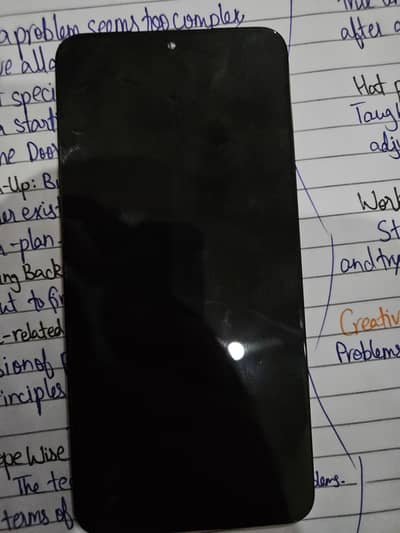 a problem seems too complex
ve allo
speci
start
ne Doo
-Up: B
er exis
-plan-
ing Back
ut to fi
-related
sion of
rinciples
ope Wise
The te
terms of
blems.
after a
Hot
Taug
adj
Work
St
and try
Creativ
Problems